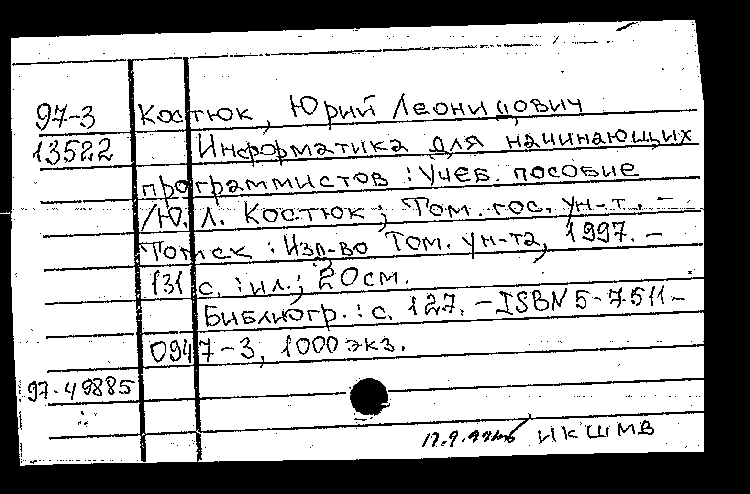 97-3 Костюк, Юрий Леонидович
13522 Информатика для начинающих
программистов : Учеб. пособие
/Ю. Л. Костюк ; Том. гос. ун-т. -
Томск : Изд-во Том. ун-та, 1997. -
131 с. : ил.; 20 см.
Библиогр. : с. 127. - ISBN 5-7511-
0947-3, 1000 экз.
97-49885
ИКШМВ